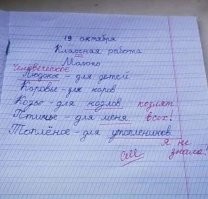 19 октября
Классная работа
Молоко
Человеческое
Людское - для детей
Коровье - для коров
Козье - для козлов козлят
Птичье - для меня всех!
Топлёное - для утопленников
я не знала!